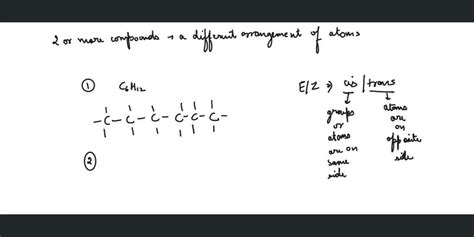 2 or more compounds → a different arrangement of atoms
① C6H12
E/Z ⇒ cis/trans
-C-C-C-C-C-C-
②
groups
or
atoms
are on
same
side
atoms
are
on
opposite
side